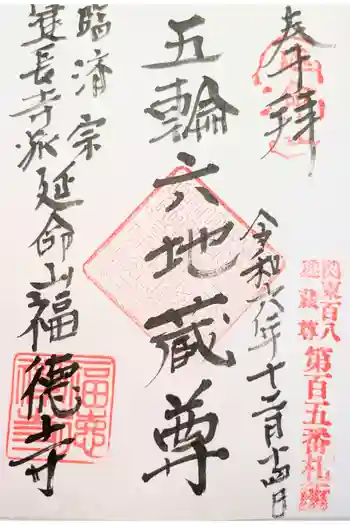 奉拝
関東百八
地蔵尊
第百五番札所
令和六年十二月十四日
五輪六地蔵尊
臨済宗
建長寺派延命山福徳寺